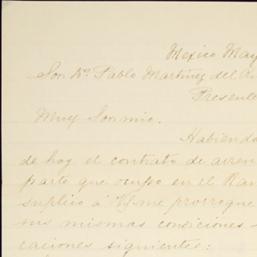 Mexico May
Sor. Dn. Pablo Martinez del
Presente
Muy Sor mio.
Habiendo
de hoy el contrato de arren
parte que ocupo en el Ran
suplico á Ud. me prorrogue
sus mismas condiciones
caciones siguientes: